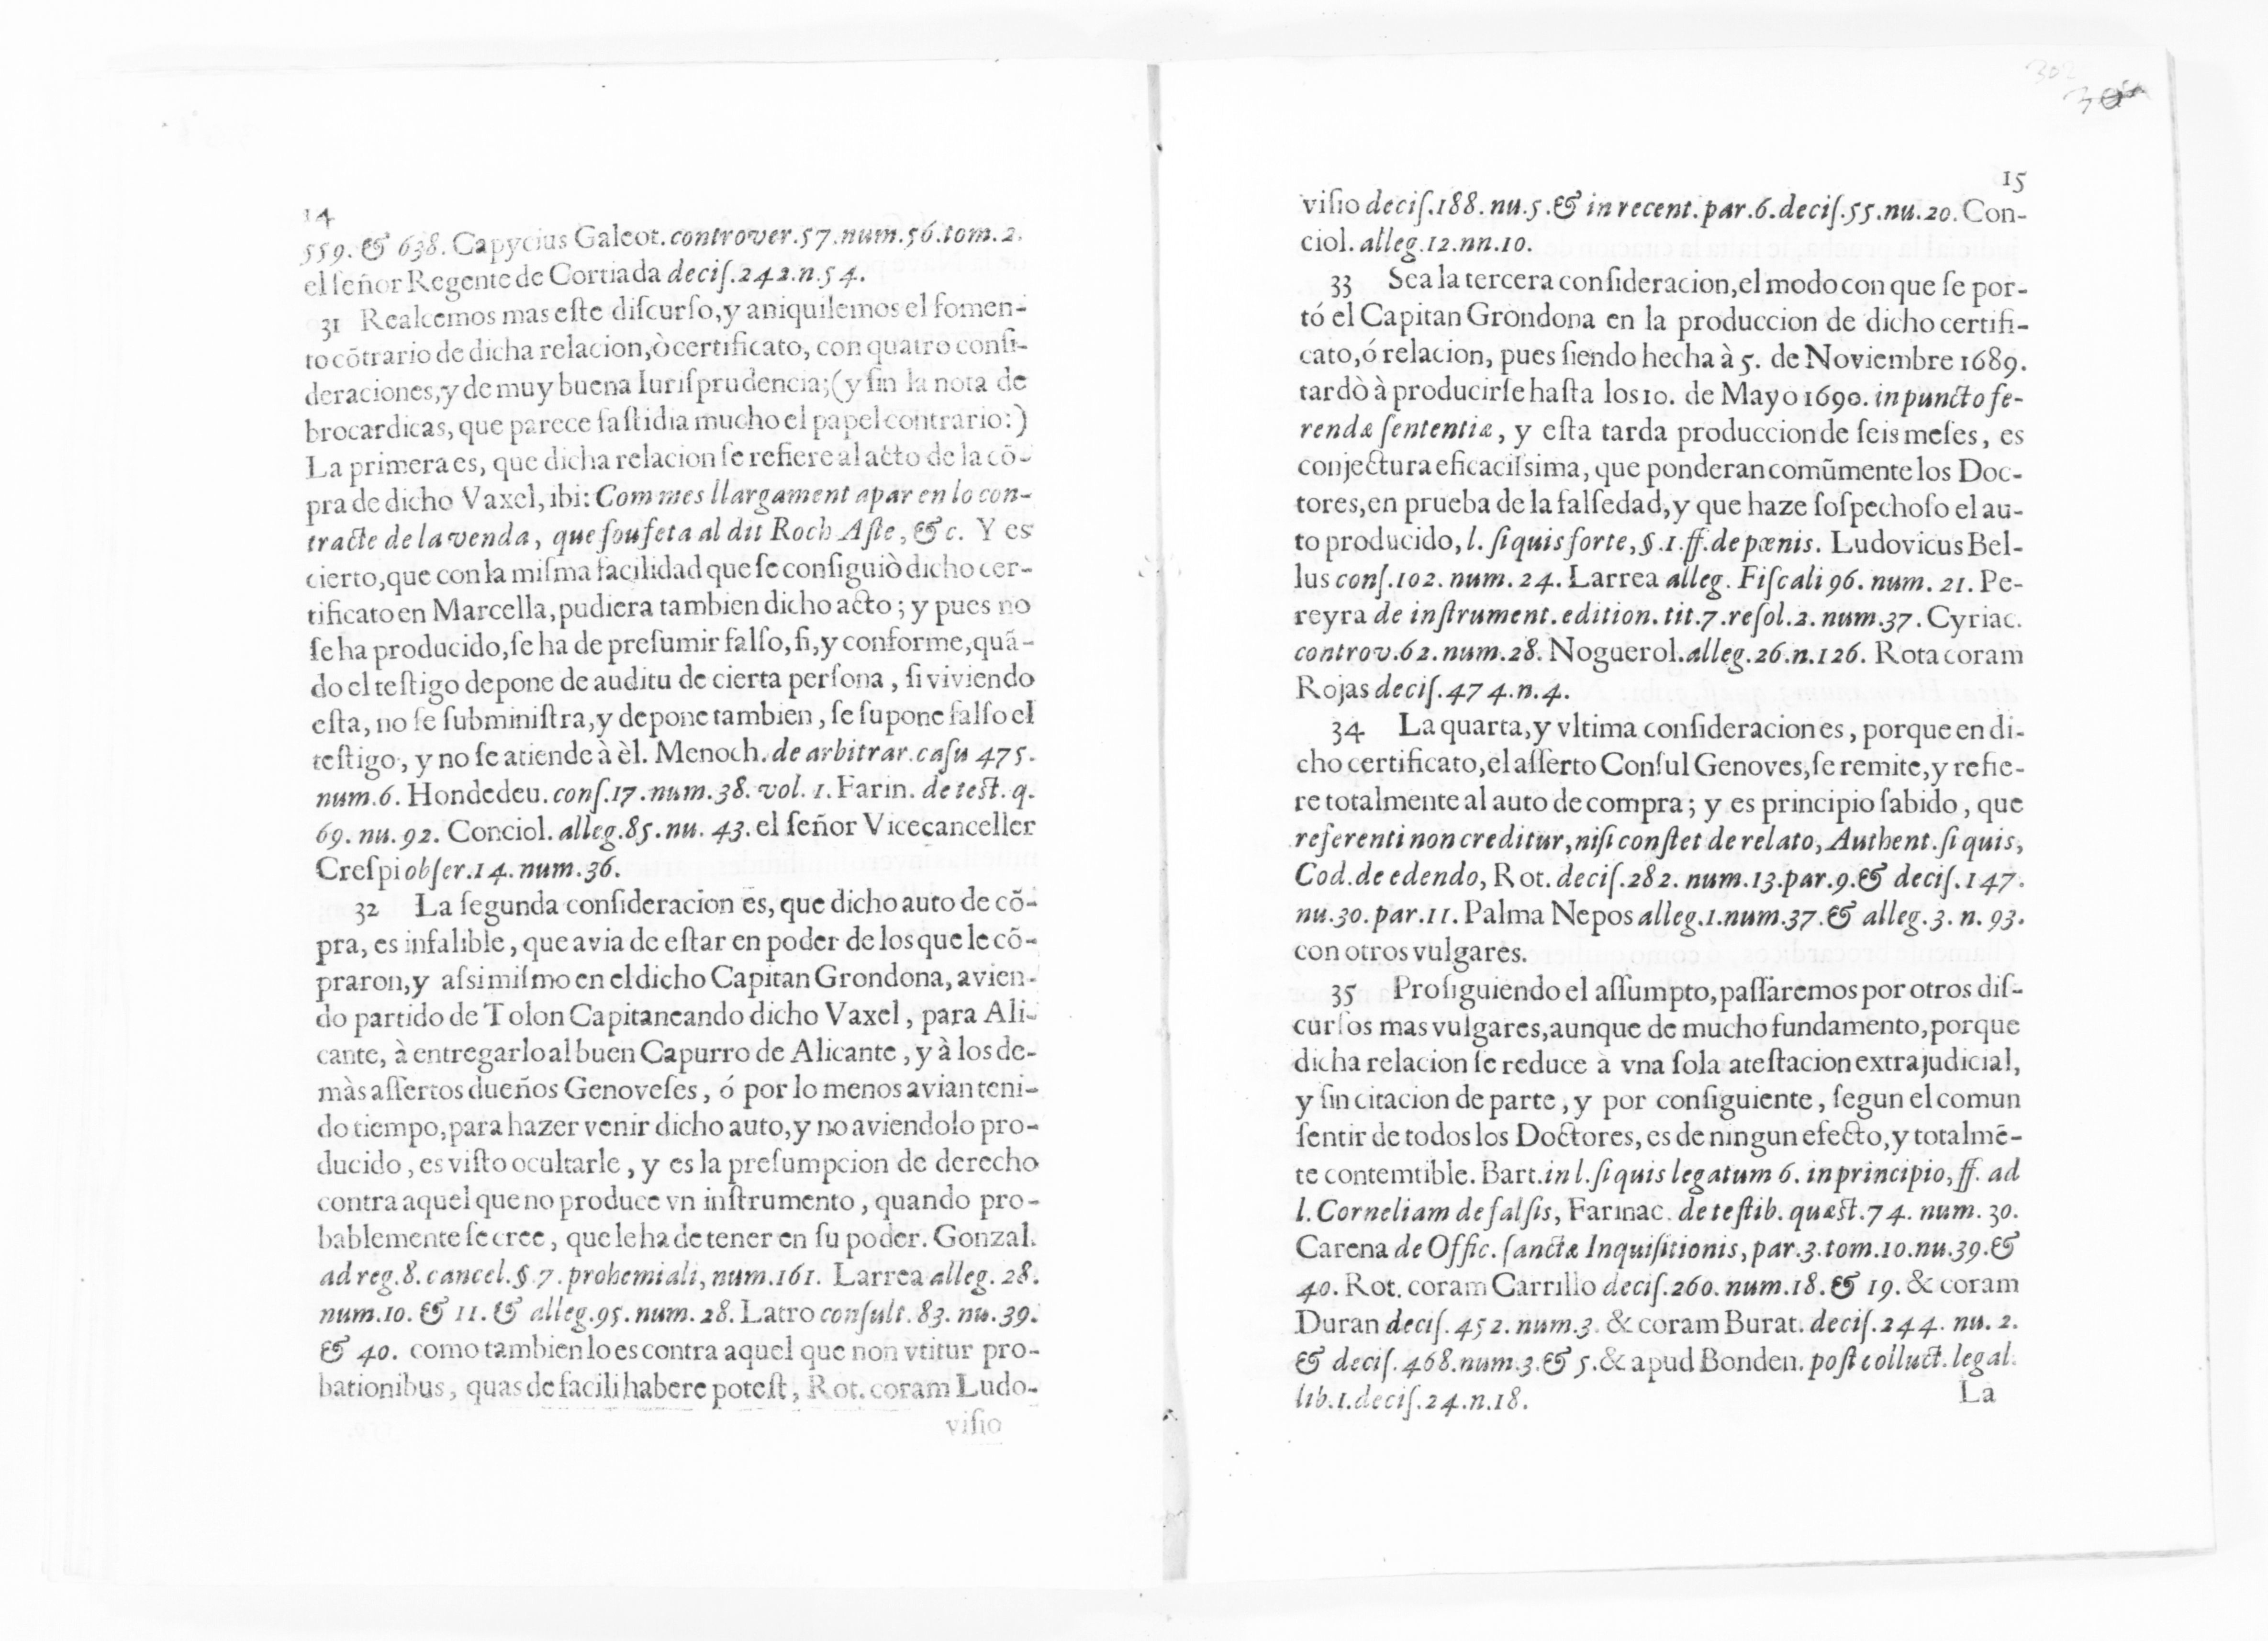 14
559. & 638. Capycius Galeot. controver.57.num.56.tom.2.
el ſeñor Regente de Cortiada deciſ.242.n.54.
31 Realcemos mas eſte diſcurſo, y aniquilemos el fomen-
to cõtrario de dicha relacion, ò certificato, con quatro conſi-
deraciones, y de muy buena Iuriſprudencia; (y ſin la nota de
brocardicas, que parece faſtidia mucho el papel contrario:)
La primera es, que dicha relacion ſe refiere al acto de la cõ-
pra de dicho Vaxel, ibi: Com mes llargament apar en lo con-
tracte de la venda, que fou feta al dit Roch Aſte, &c. Y es
cierto, que con la miſma facilidad que ſe conſiguiò dicho cer-
tificato en Marcella, pudiera tambien dicho acto; y pues no
ſe ha producido, ſe ha de preſumir falſo, ſi, y conforme, quã-
do el teſtigo depone de auditu de cierta perſona, ſi viviendo
eſta, no ſe ſubminiſtra, y depone tambien, ſe ſupone falſo el
teſtigo, y no ſe atiende à èl. Menoch. de arbitrar.caſu 475.
num.6. Hondedeu. conſ.17.num.38.vol.1. Farin. de teſt. q.
69. nu.92. Conciol. alleg.85.nu. 43. el ſeñor Vicecanceller
Creſpi obſer.14.num.36.
32 La ſegunda conſideracion es, que dicho auto de cõ-
pra, es infalible, que avia de eſtar en poder de los que le cõ-
praron, y aſsimiſmo en el dicho Capitan Grondona, avien-
do partido de Tolon Capitaneando dicho Vaxel, para Ali-
cante, à entregarlo al buen Capurro de Alicante, y à los de-
màs aſſertos dueños Genoveſes, ó por lo menos avian teni-
do tiempo, para hazer venir dicho auto, y no aviendolo pro-
ducido, es viſto ocultarle, y es la preſumpcion de derecho
contra aquel que no produce vn inſtrumento, quando pro-
bablemente ſe cree, que le ha de tener en ſu poder. Gonzal.
ad reg.8.cancel.§.7.prohemiali, num.161. Larrea alleg. 28.
num.10. & 11. & alleg.95.num.28. Latro conſult. 83. nu.39.
& 40. como tambien lo es contra aquel que non vtitur pro-
bationibus, quas de facili habere poteſt, Rot. coram Ludo-
viſio
15
viſio deciſ.188.nu.5.& in recent.par.6.deciſ.55.nu.20. Con-
ciol. alleg.12.nn.10.
33 Sea la tercera conſideracion, el modo con que ſe por-
tó el Capitan Grondona en la produccion de dicho certifi-
cato, ó relacion, pues ſiendo hecha à 5. de Noviembre 1689.
tardò à producirſe haſta los 10. de Mayo 1690. in puncto fe-
rendæ ſententiæ, y eſta tarda produccion de ſeis meſes, es
conjectura eficaciſsima, que ponderan comũmente los Doc-
tores, en prueba de la falſedad, y que haze ſoſpechoſo el au-
to producido, l. ſi quis forte, §.1.ff.de pœnis. Ludovicus Bel-
lus conſ.102.num.24. Larrea alleg. Fiſcali 96. num. 21. Pe-
reyra de inſtrument.edition.tit.7.reſol.2.num.37. Cyriac.
controv.62.num.28. Noguerol. alleg.26.n.126. Rota coram
Rojas deciſ.474.n.4.
34 La quarta, y vltima conſideracion es, porque en di-
cho certificato, el aſſerto Conſul Genoves, ſe remite, y refie-
re totalmente al auto de compra; y es principio ſabido, que
referenti non creditur, niſi conſtet de relato, Authent.ſi quis,
Cod.de edendo, Rot. deciſ.282. num.13.par.9.& deciſ.147.
nu.30.par.11. Palma Nepos alleg.1.num.37.& alleg.3.n.93.
con otros vulgares.
35 Proſiguiendo el aſſumpto, paſſaremos por otros diſ-
curſos mas vulgares, aunque de mucho fundamento, porque
dicha relacion ſe reduce à vna ſola ateſtacion extrajudicial,
y ſin citacion de parte, y por conſiguiente, ſegun el comun
ſentir de todos los Doctores, es de ningun efecto, y totalmẽ-
te contemtible. Bart. in l.ſi quis legatum 6. in principio, ff. ad
l. Corneliam de falſis, Farinac. de teſtib. quæſt.74. num. 30.
Carena de Offic. ſanctæ Inquiſitionis, par.3.tom.10.nu.39.&
40. Rot. coram Carrillo deciſ.260.num.18.& 19. & coram
Duran deciſ. 452.num.3. & coram Burat. deciſ.244. nu. 2.
& deciſ.468.num.3.& 5.& apud Bonden. poſt colluct.legal.
lib.1.deciſ.24.n.18.
La